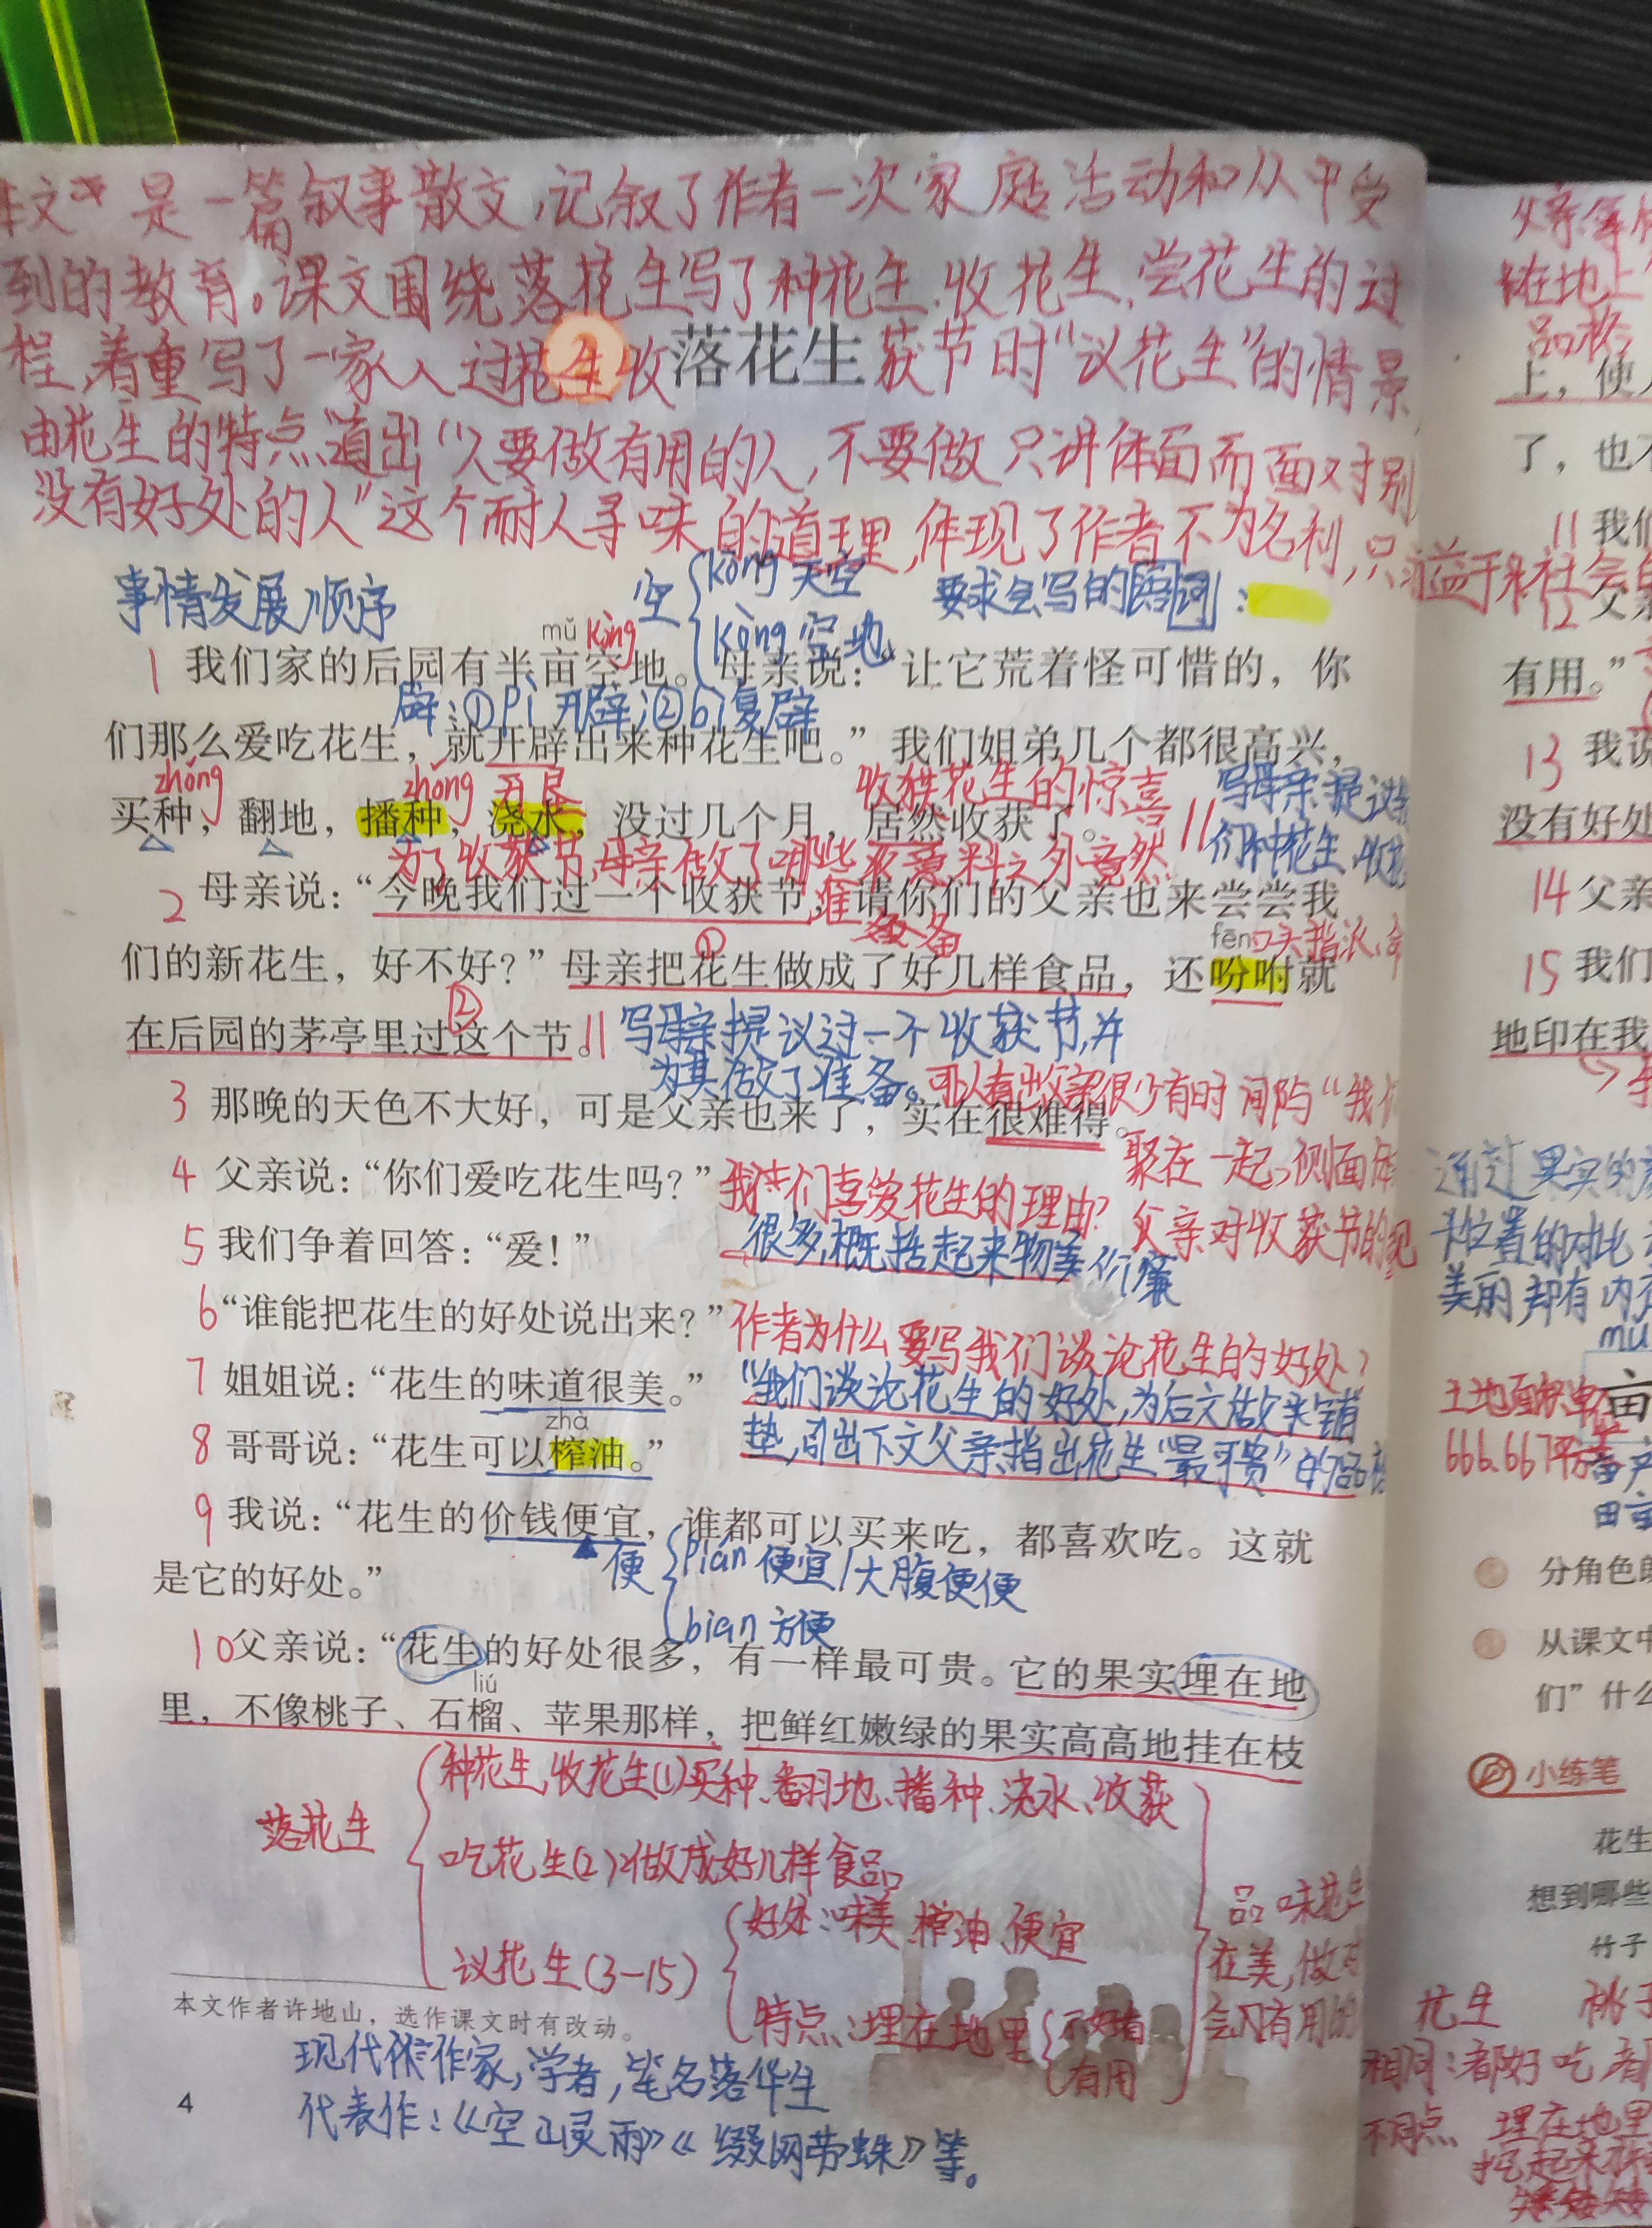 是一篇叙事散文,记叙了作者一次家庭活动和从中受
到的教育。课文围绕落花生写了种花生、收花生、尝花生的过
程,着重写了一家人过花生收获节时“议花生”的情景
2 落花生
由花生的特点道出“人要做有用的人,不要做只讲体面而面对别
没有好处的人”这个耐人寻味的道理,体现了作者不为名利,只
益于社会
事情发展顺序
空 kōng 天空
kòng 空地
要求会写的词:
mǔ kòng
1 我们家的后园有半亩空地。母亲说:“让它荒着怪可惜的,你
辟:①pì 开辟;②bì复辟
们那么爱吃花生,就开辟出来种花生吧。”我们姐弟几个都很高兴,
zhǒng zhǒng
收获花生的惊喜
写母亲提议
买种,翻地,播种,浇水,没过几个月,居然收获了。
们种花生、收
为了收获节,母亲做了哪些
准备
意料之外 竟然
2 母亲说:“今晚我们过一个收获节,请你们的父亲也来尝尝我
① fēn 口头指派
们的新花生,好不好?”母亲把花生做成了好几样食品,还吩咐就
②
在后园的茅亭里过这个节。
写母亲提议过一个收获节,并
为其做了准备。
可以看出父亲很少有时间陪“我
3 那晚的天色不大好,可是父亲也来了,实在很难得。
聚在一起,侧面
父亲对收获节的
4 父亲说:“你们爱吃花生吗?”
我们喜爱花生的理由?
5 我们争着回答:“爱!”
很多,概括起来物美价廉
6 “谁能把花生的好处说出来?”
作者为什么要写我们谈论花生的好处?
7 姐姐说:“花生的味道很美。”
“我们谈论花生的好处,为后文做铺
zhà
8 哥哥说:“花生可以榨油。”
垫,引出下文父亲指出花生“最可贵”的品
9 我说:“花生的价钱便宜,谁都可以买来吃,都喜欢吃。这就
便 pián 便宜/大腹便便
是它的好处。”
biàn 方便
10 父亲说:“花生的好处很多,有一样最可贵。它的果实埋在地
liú
里,不像桃子、石榴、苹果那样,把鲜红嫩绿的果实高高地挂在枝
落花生
种花生、收花生(1)买种、翻地、播种、浇水、收获
吃花生(2):做成好几样食品
议花生(3-15)
好处:味美、榨油、便宜
特点:埋在地里
不好看
有用
品味花生
在美,做
有用的
本文作者许地山,选作课文时有改动。
现代作家,学者,笔名落华生
代表作:《空山灵雨》《缀网劳蛛》等。
4
父亲
在地上
品格
上,使
了,也不
11 我们
12 父亲
有用。”
13 我说
没有好处
14 父亲
15 我们
地印在我
通过果实的
位置的对比
美丽,却有内在
mǔ
亩
土地面积单位
666.667平方
田亩
分角色朗
从课文中
们”什么
小练笔
花生
想到哪些
竹子
花生 桃子
相同:都好吃
不同点 埋在地里
挖起来